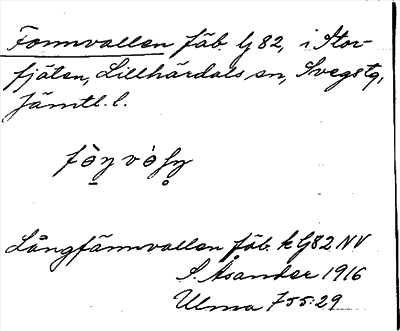 Fonnvallen fäb. G 82, i Stor-
fjäten, Lillhärdals sn, Svegs tg,
Jämtl. l.
Långfännvallen fäb. k G82 NV
S. Åsander 1916
Ulma 755:29